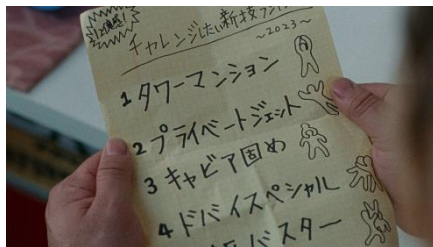 チャレンジしたい新技
～2023～
1 タワーマンション
2 プライベートジェット
3 キャビア固め
4 ドバイスペシャル
バスター